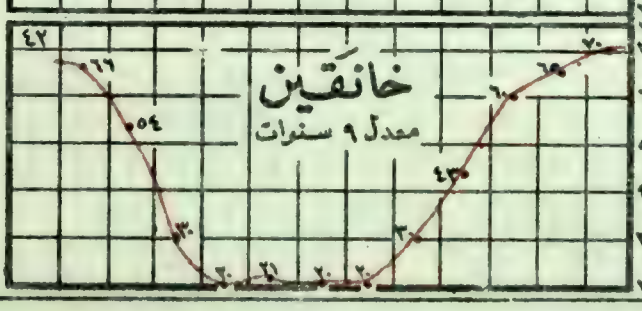 ٤٢
خانَقين
معدل ٩ سنوات
٦٦
٥٤
٣٠
٢٠
٢١
٢٠
٢٠
٣٠
٤٣
٦٠
٦٥
٧٠